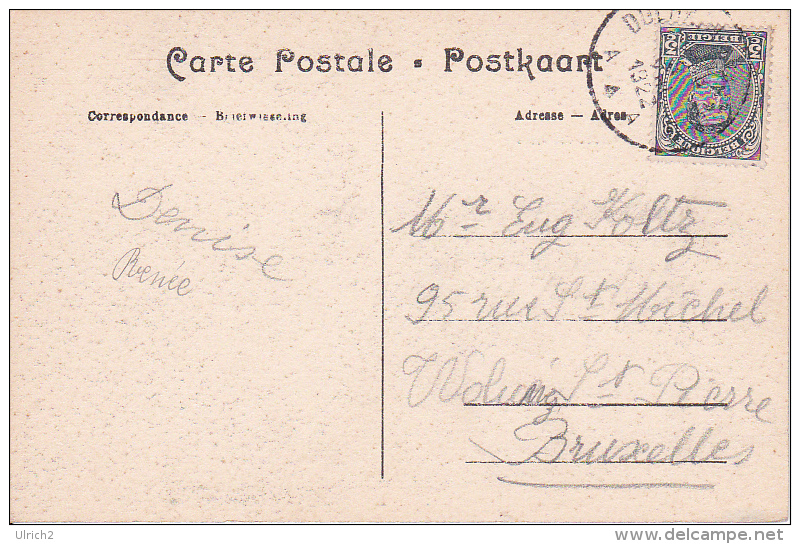 Carte Postale • Postkaart
Correspondance — Briefwisseling
Adresse — Adres
1922
A A A
BELGIE
BELGIQUE
Denise
Renée
Mr Eug Holtz
95 rue St Michel
St Pierre
Bruxelles
Ulrich2
www.delcampe.net